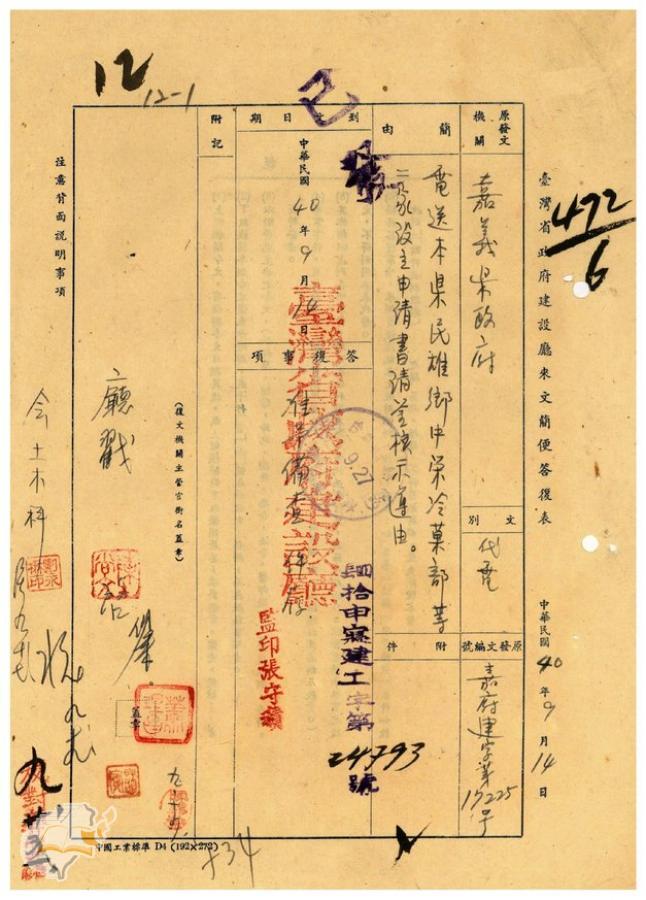 472/6
臺灣省政府建設廳來文簡便答復表
中華民國 40 年 9 月 14 日
原發文機關
嘉義県政府
文別
代電
原發文編號
嘉府建字第17225号
簡由
電送本県民雄鄉中榮冷菓部等
二家設立申請書請鑒核示遵由。
附件
到文日期
中華民國 40 年 9 月 14 日
答復事項
准予備查件存
臺灣省政府建設廳
9.21
肆拾申寒建工字第
24793
號
監印張守績
附記
(復文機關主管官銜名蓋章)
廳戳
蓋章
會土木科
注意背面說明事項
12
12-1
已
中國工業標準 D4 (192×272)
+34